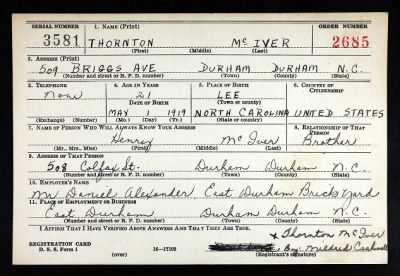 SERIAL NUMBER 1. NAME (Print) ORDER NUMBER
3581 THORNTON Mc IVER 2685
(First) (Middle) (Last)
2. ADDRESS (Print)
509 BRIGGS AVE DURHAM DURHAM N.C.
(Number and street or R. F. D. number) (Town) (County) (State)
3. TELEPHONE 4. AGE IN YEARS 5. PLACE OF BIRTH 6. COUNTRY OF CITIZENSHIP
None 21 LEE
DATE OF BIRTH (Town or county)
MAY 1 1919 NORTH CAROLINA UNITED STATES
(Exchange) (Number) (Mo.) (Day) (Yr.) (State or country)
7. NAME OF PERSON WHO WILL ALWAYS KNOW YOUR ADDRESS 8. RELATIONSHIP OF THAT PERSON
Henry Mc Iver Brother
(Mr., Mrs., Miss) (First) (Middle) (Last)
9. ADDRESS OF THAT PERSON
508 Colfax St. Durham Durham N.C.
(Number and street or R. F. D. number) (Town) (County) (State)
10. EMPLOYER'S NAME
Mr Daniel Alexander East Durham Brick yard
11. PLACE OF EMPLOYMENT OR BUSINESS
East Durham Durham Durham N.C.
(Number and street or R. F. D. number) (Town) (County) (State)
I AFFIRM THAT I HAVE VERIFIED ABOVE ANSWERS AND THAT THEY ARE TRUE.
x Thornton Mc Iver
REGISTRATION CARD
D. S. S. Form 1 16—17105 By: Mildred
(over) (Registrant's signature)